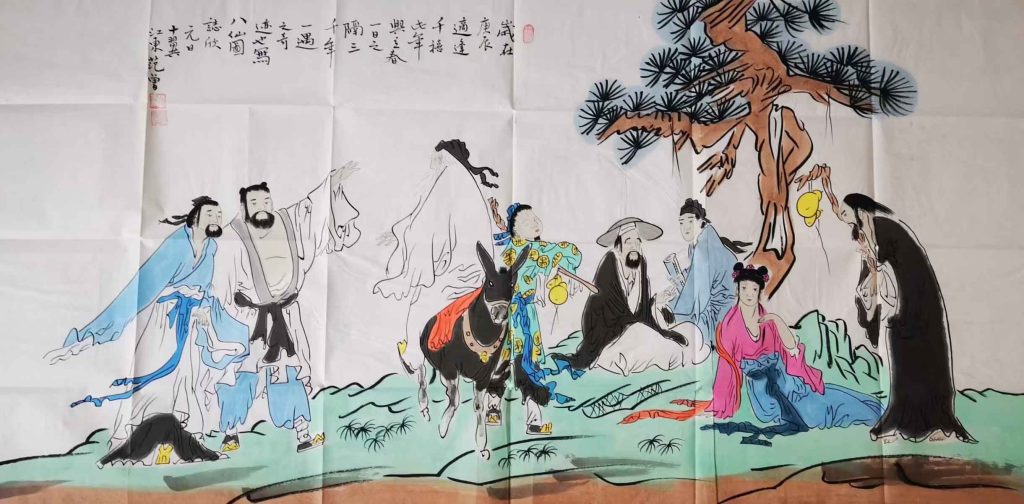 歲在
庚辰
適逢
千禧
年
春
一日之
隔三
千年
一遇
之奇
迹也寫
八仙圖
誌欣
元日
十翼
江東范曾